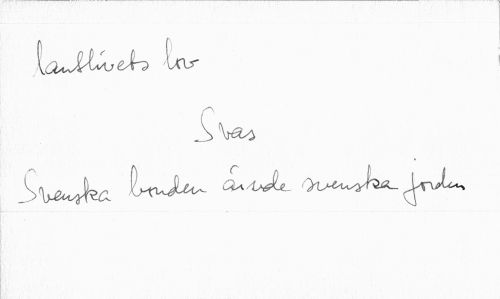 lantlivets lov
Svas
Svenska bonden ärvde svenska jorden